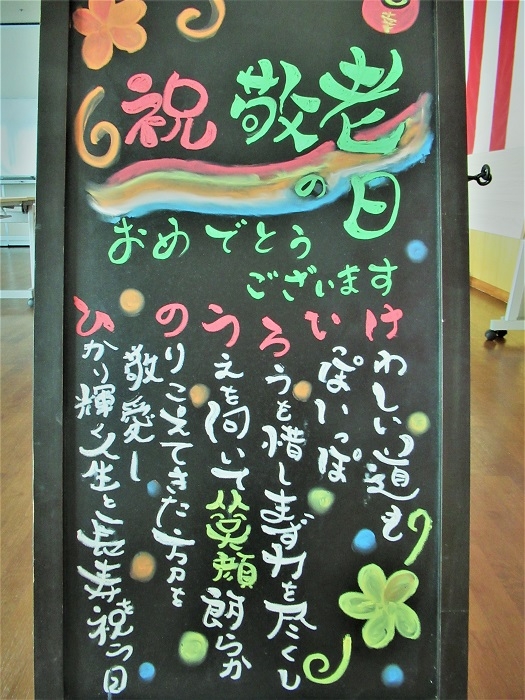 祝 敬老
の日
おめでとう
ございます
けわしい道も
いっぽいっぽ
ろうを惜しまず力を尽くし
うえを向いて笑顔朗らか
のりこえてきた方々を
敬愛し
ひかり輝く人生と長寿を祝う日